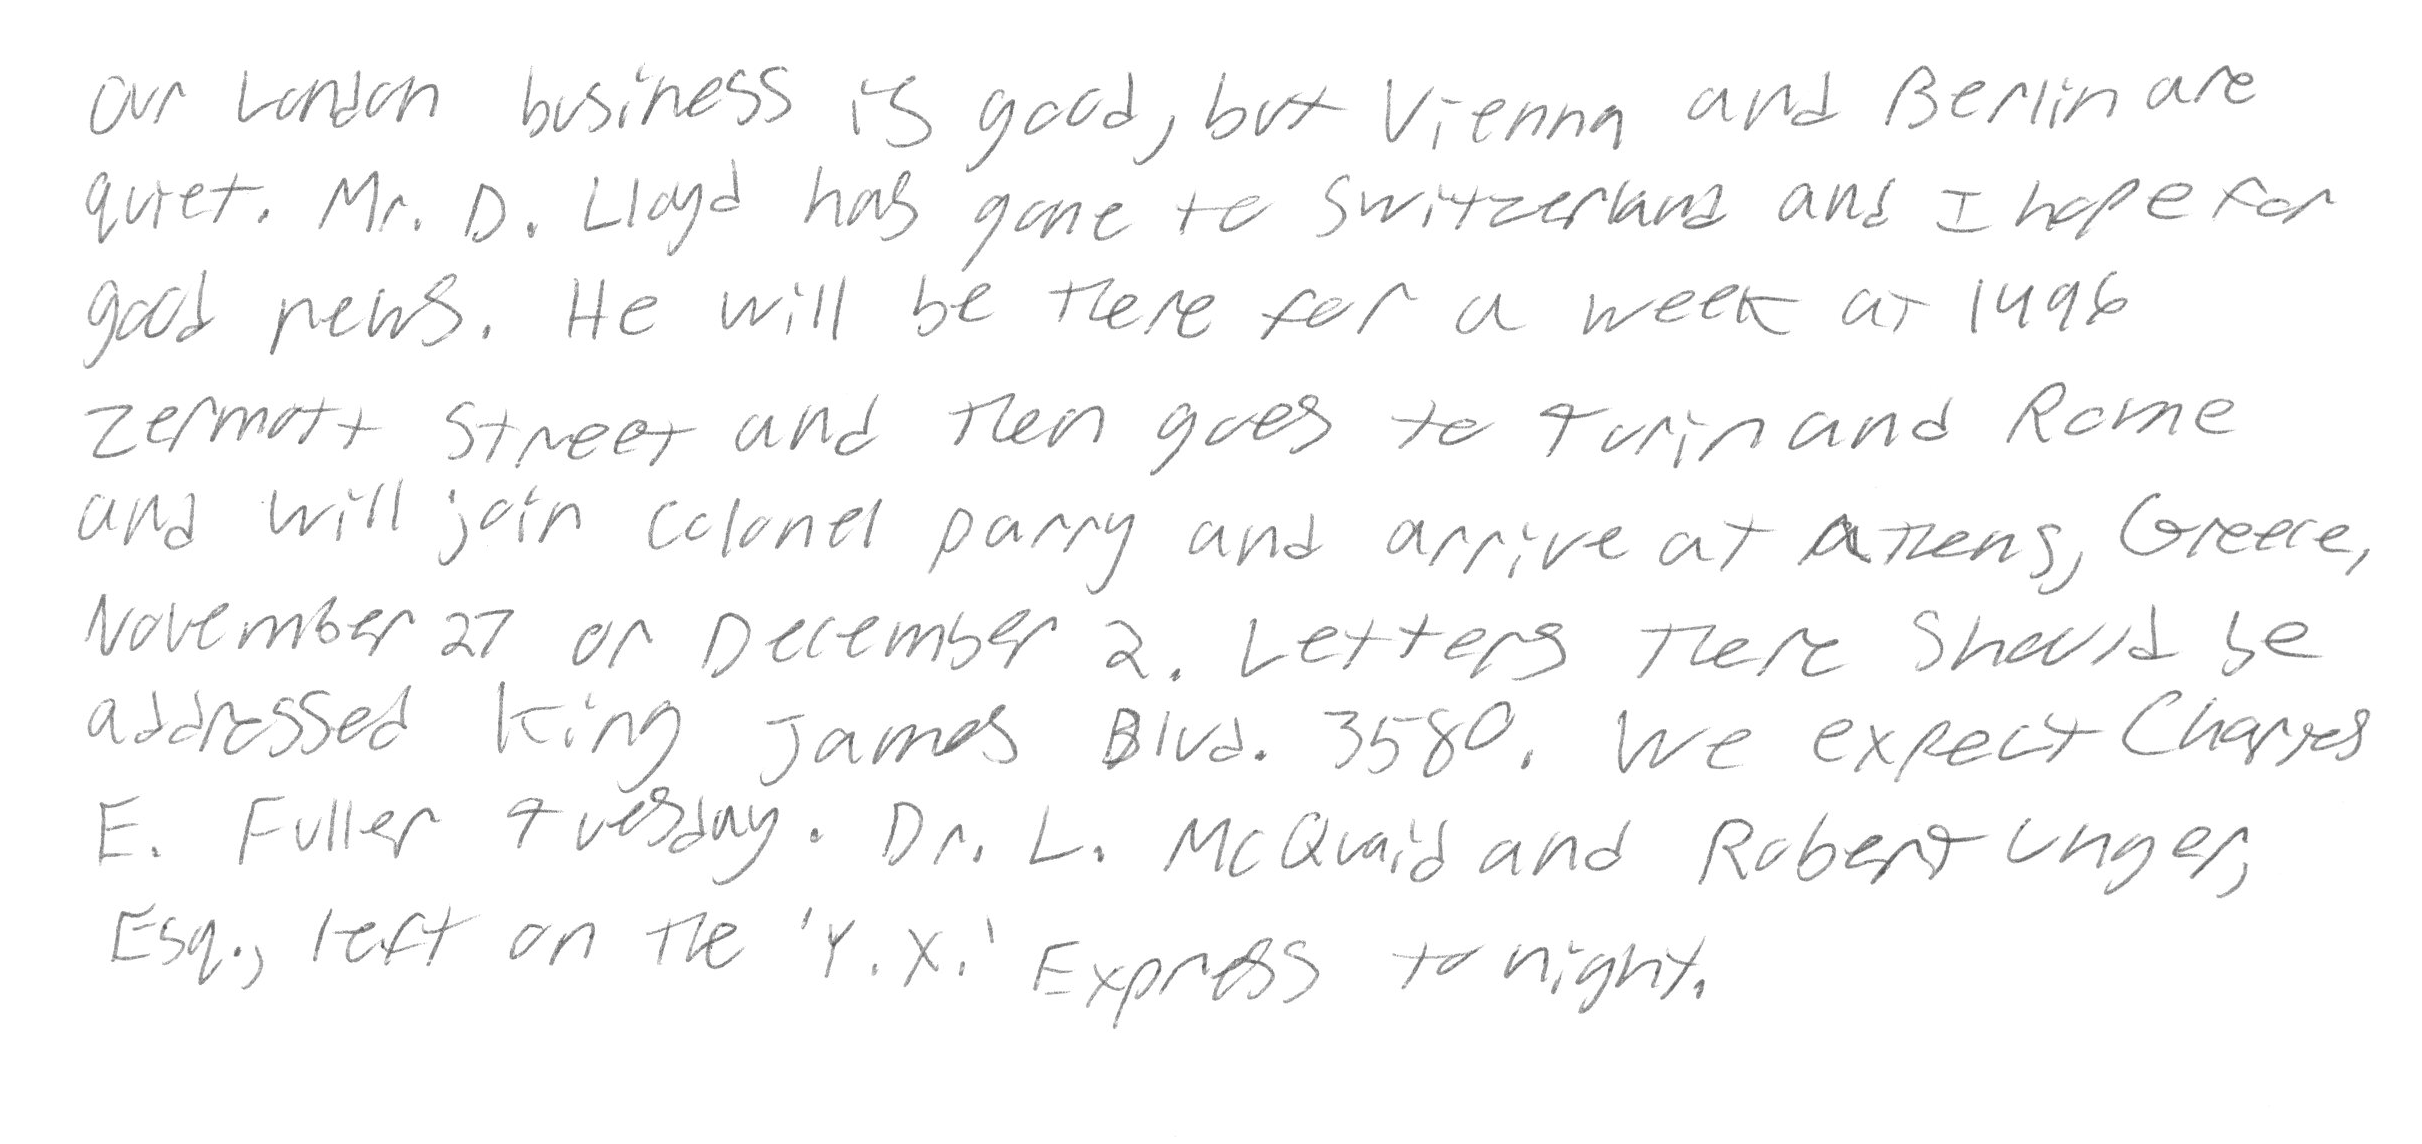 Our London business is good, but Vienna and Berlin are
quiet. Mr. D. Lloyd has gone to Switzerland and I hope for
good news. He will be there for a week at 1496
Zermott Street and then goes to Turin and Rome
and will join Colonel Parry and arrive at Athens, Greece,
November 27 or December 2. Letters there should be
addressed King James Blvd. 3580. We expect Charles
E. Fuller Tuesday. Dr. L. McQuaid and Robert Unger,
Esq., left on the 'Y.X.' Express tonight.